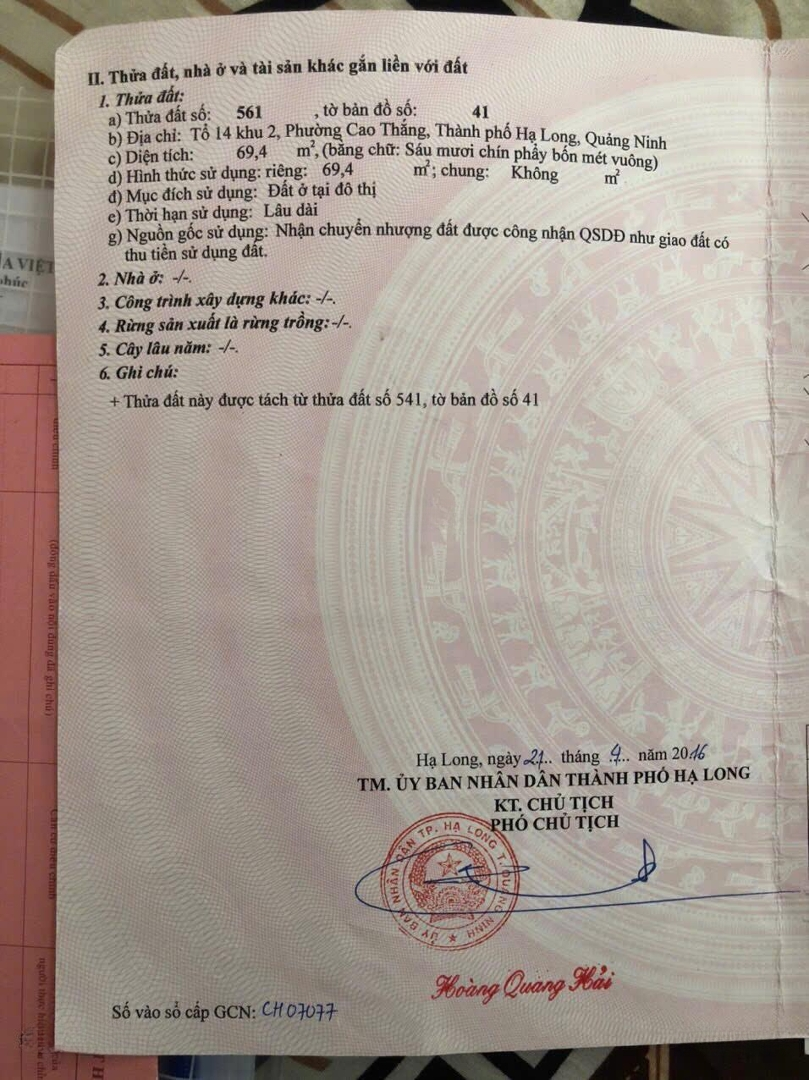 II. Thửa đất, nhà ở và tài sản khác gắn liền với đất
1. Thửa đất:
a) Thửa đất số: 561 , tờ bản đồ số: 41
b) Địa chỉ: Tổ 14 khu 2, Phường Cao Thắng, Thành phố Hạ Long, Quảng Ninh
c) Diện tích: 69,4 m², (bằng chữ: Sáu mươi chín phẩy bốn mét vuông)
d) Hình thức sử dụng: riêng: 69,4 m²; chung: Không m²
đ) Mục đích sử dụng: Đất ở tại đô thị
e) Thời hạn sử dụng: Lâu dài
g) Nguồn gốc sử dụng: Nhận chuyển nhượng đất được công nhận QSDĐ như giao đất có
thu tiền sử dụng đất.
2. Nhà ở: -/-.
3. Công trình xây dựng khác: -/-.
4. Rừng sản xuất là rừng trồng:-/-.
5. Cây lâu năm: -/-.
6. Ghi chú:
+ Thửa đất này được tách từ thửa đất số 541, tờ bản đồ số 41
A VIỆT
phúc
(đóng dấu vào nội dung đã ghi chú)
Hạ Long, ngày 21.. tháng .9.. năm 2016
TM. ỦY BAN NHÂN DÂN THÀNH PHỐ HẠ LONG
KT. CHỦ TỊCH
PHÓ CHỦ TỊCH
ỦY BAN NHÂN DÂN TP. HẠ LONG T. QUẢNG NINH
Hoàng Quang Hải
Số vào sổ cấp GCN: CH07077